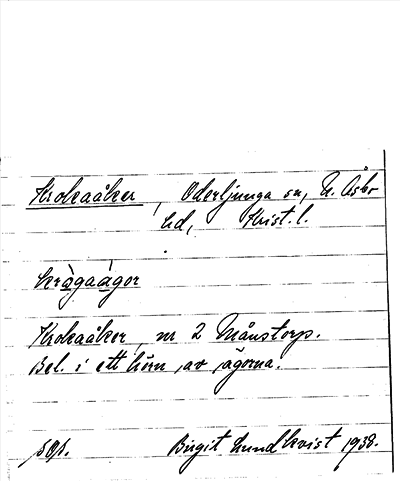 Krokaåker, Oderljunga sn, N. Åsbo
hd, Krist. l.
kràgaàgor
Krokaåker, nr 2 Månstorp.
Bel. i ett hörn av ägorna.
Birgit Lundkvist 1938.